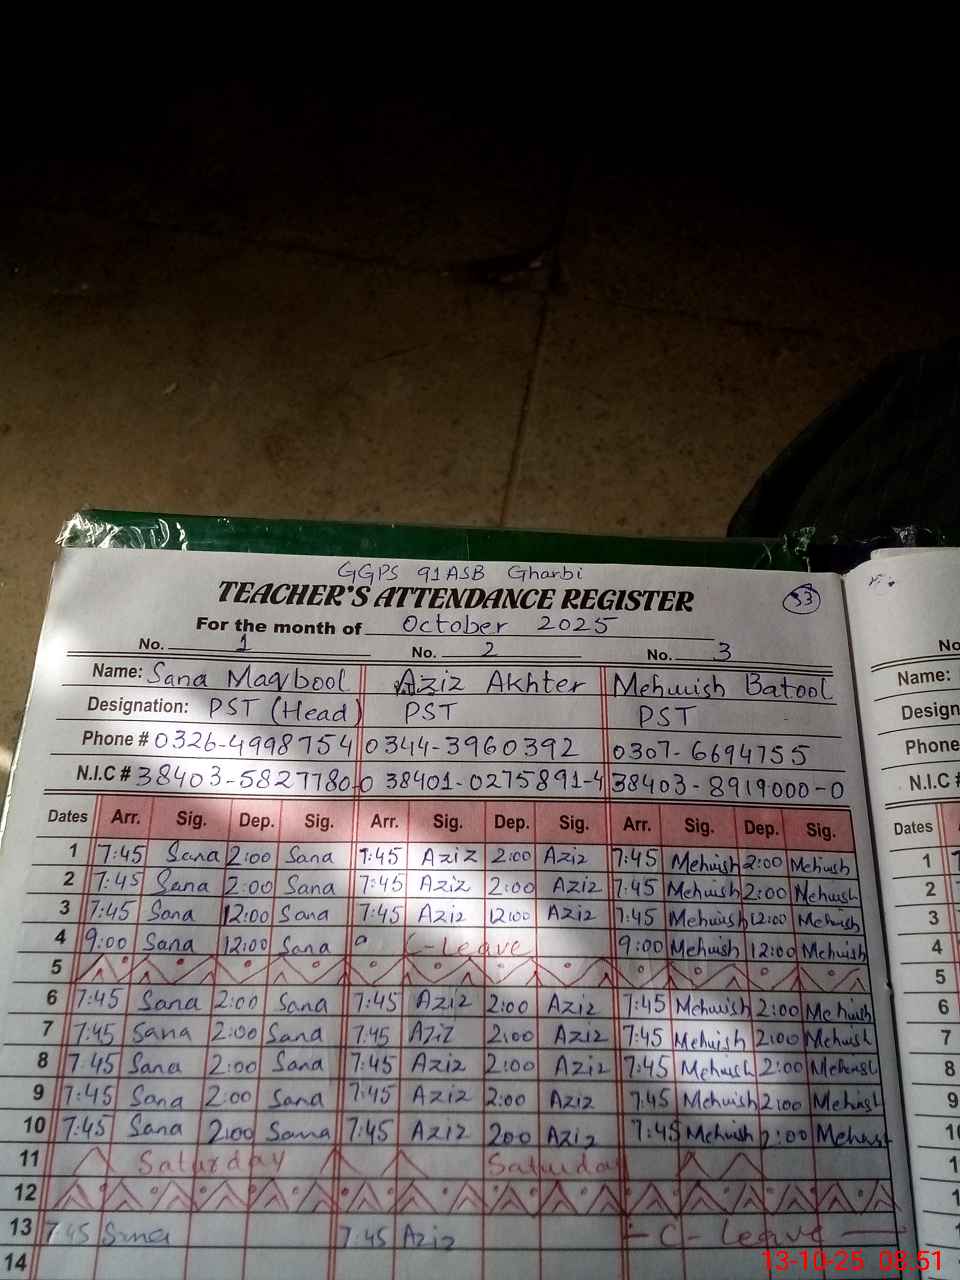 GGPS 91ASB Gharbi
TEACHER'S ATTENDANCE REGISTER 33
For the month of October 2025
No. 1 No. 2 No. 3
Name: Sana Maqbool Aziz Akhter Mehwish Batool
Designation: PST (Head) PST PST
Phone # 0326-4998754 0344-3960392 0307-6694755
N.I.C # 38403-5827780-0 38401-0275891-4 38403-8919000-0
Dates Arr. Sig. Dep. Sig. Arr. Sig. Dep. Sig. Arr. Sig. Dep. Sig.
1 7:45 Sana 2:00 Sana 7:45 Aziz 2:00 Aziz 7:45 Mehwish 2:00 Mehwish
2 7:45 Sana 2:00 Sana 7:45 Aziz 2:00 Aziz 7:45 Mehwish 2:00 Mehwish
3 7:45 Sana 12:00 Sana 7:45 Aziz 12:00 Aziz 7:45 Mehwish 12:00 Mehwish
4 9:00 Sana 12:00 Sana C-Leave 9:00 Mehwish 12:00 Mehwish
5
6 7:45 Sana 2:00 Sana 7:45 Aziz 2:00 Aziz 7:45 Mehwish 2:00 Mehwish
7 7:45 Sana 2:00 Sana 7:45 Aziz 2:00 Aziz 7:45 Mehwish 2:00 Mehwish
8 7:45 Sana 2:00 Sana 7:45 Aziz 2:00 Aziz 7:45 Mehwish 2:00 Mehwish
9 7:45 Sana 2:00 Sana 7:45 Aziz 2:00 Aziz 7:45 Mehwish 2:00 Mehwish
10 7:45 Sana 2:00 Sana 7:45 Aziz 200 Aziz 7:45 Mehwish 2:00 Mehwish
11 Saturday Saturday
12
13 7:45 Sana 7:45 Aziz C-Leave
14
No
Name:
Design
Phone
N.I.C #
Dates
1
2
3
4
5
6
7
8
9
13-10-25 08:51